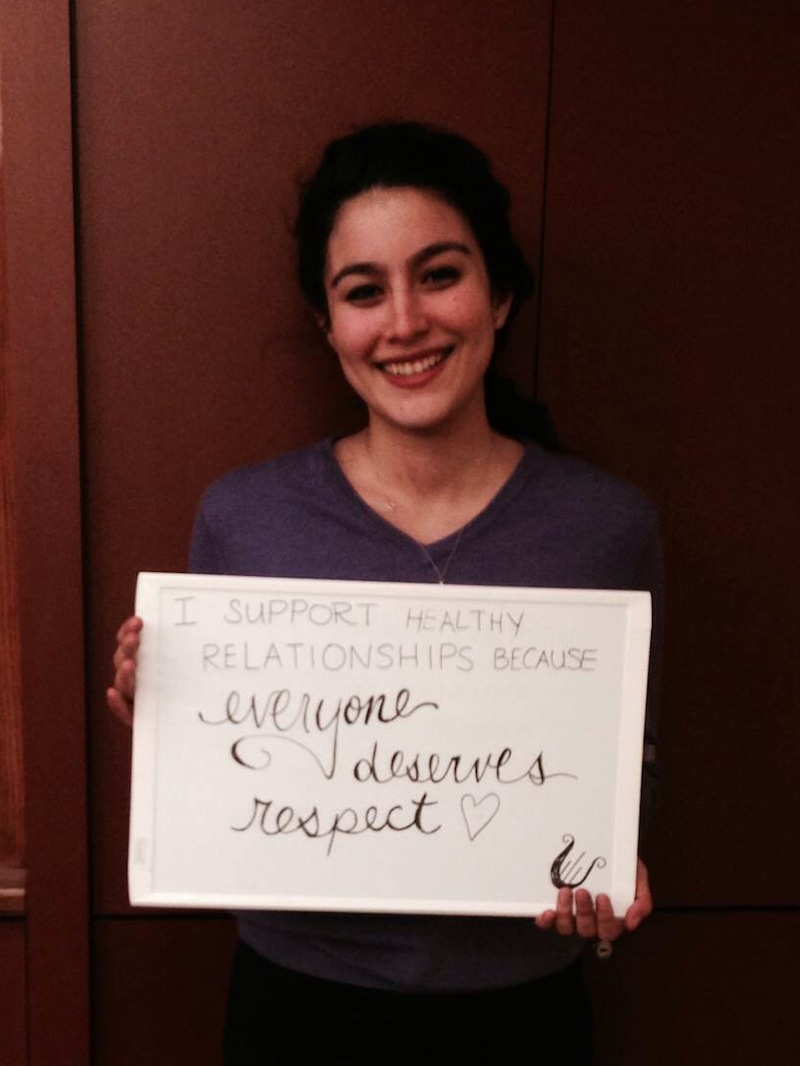 I SUPPORT HEALTHY
RELATIONSHIPS BECAUSE
everyone
deserves
respect ♡